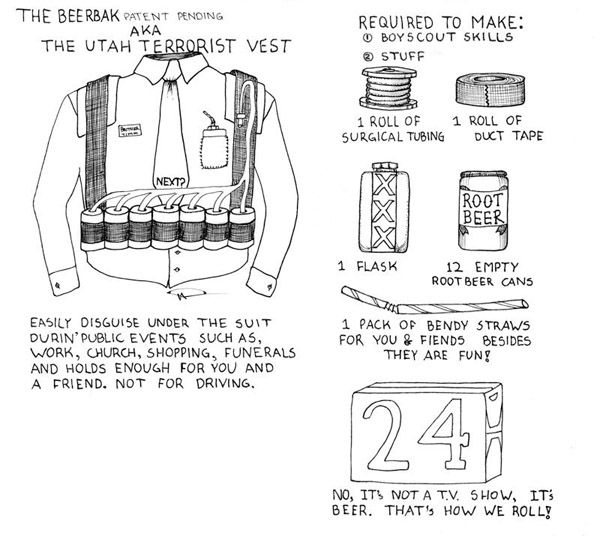 THE BEERBAK PATENT PENDING
AKA
THE UTAH TERRORIST VEST
NEXT?
EASILY DISGUISE UNDER THE SUIT
DURIN' PUBLIC EVENTS SUCH AS,
WORK, CHURCH, SHOPPING, FUNERALS
AND HOLDS ENOUGH FOR YOU AND
A FRIEND. NOT FOR DRIVING.
REQUIRED TO MAKE:
① BOYSCOUT SKILLS
② STUFF
1 ROLL OF
SURGICAL TUBING
1 ROLL OF
DUCT TAPE
XXX
1 FLASK
ROOT
BEER
12 EMPTY
ROOTBEER CANS
1 PACK OF BENDY STRAWS
FOR YOU & FIENDS BESIDES
THEY ARE FUN!
24
NO, IT'S NOT A T.V. SHOW, IT'S
BEER. THAT'S HOW WE ROLL!